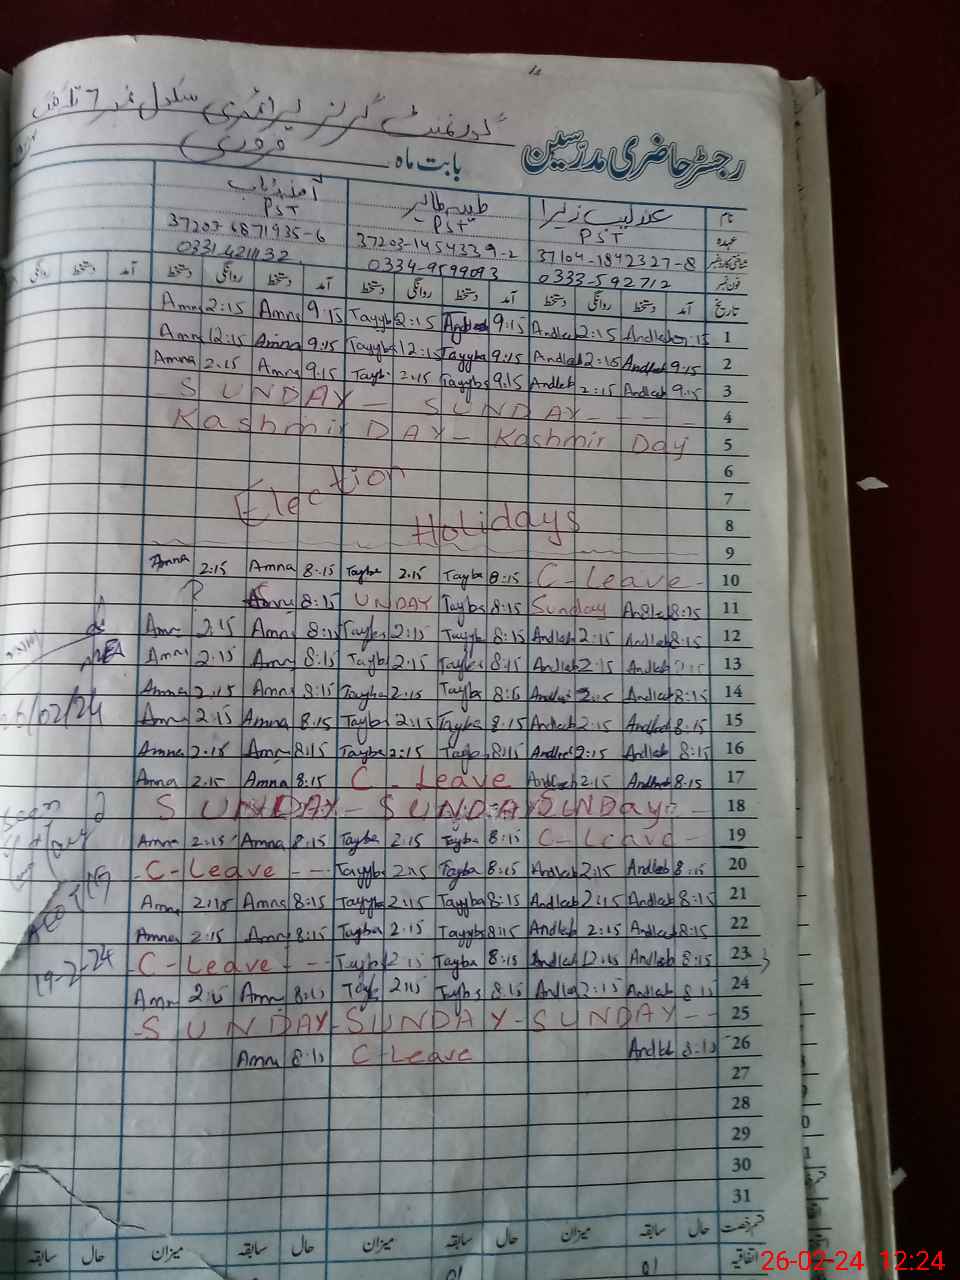 گورنمنٹ گرلز پرائمری سکول نمبر 7 تلہ گنگ
رجسٹر حاضری مدرسین
بابت ماہ فروری
نام عندلیب زہرا طیبہ طاہر آمنہ رباب
عہدہ PST PST PST
شناختی کارڈ نمبر 37104-1842327-8 37203-1454339-2 37203-6871935-6
فون نمبر 0333-592712 0334-9599093 0331421132
تاریخ آمد دستخط روانگی دستخط آمد دستخط روانگی دستخط آمد دستخط روانگی دستخط آمد دستخط روانگی
Amna 2:15 Amna 9:15 Tayyba 2:15 9:15 Andleeb 2:15 Andleeb 9:15 1
Amna 12:15 Amna 9:15 Tayyba 12:15 Tayyba 9:15 Andleeb 2:15 Andleeb 9:15 2
Amna 2:15 Amna 9:15 Tayba 2:15 Tayyba 9:15 Andleeb 2:15 Andleeb 9:15 3
SUNDAY - SUNDAY - - - - 4
Kashmir DAY - Kashmir Day 5
6
Election 7
Holidays 8
9
Amna 2:15 Amna 8:15 Tayba 2:15 Tayba 8:15 C-Leave - 10
8:15 UNDAY Tayba 8:15 Sunday 8:15 11
Amna 2:15 Amna 8:15 Tayyba 2:15 Tayyba 8:15 Andleeb 2:15 Andleeb 8:15 12
Amna 2:15 Amna 8:15 Tayyba 2:15 Tayyba 8:15 Andleeb 2:15 Andleeb 13
Amna 2:15 Amna 8:15 Tayyba 2:15 Tayyba 8:15 Andleeb 2:15 Andleeb 8:15 14
26/02/24 Amna 2:15 Amna 8:15 Tayyba 2:15 Tayyba 8:15 Andleeb 2:15 Andleeb 8:15 15
Amna 2:15 Amna 8:15 Tayyba 2:15 Tayyba 8:15 Andleeb 2:15 Andleeb 8:15 16
Amna 2:15 Amna 8:15 C-Leave Andleeb 2:15 Andleeb 8:15 17
Seen SUNDAY - SUNDAY SUNDay - - 18
Amna 2:15 Amna 8:15 Tayba 2:15 Tayba 8:15 C-Leave - 19
C-Leave - - - Tayyba 2:15 Tayba 8:15 Andleeb 2:15 Andleeb 8:15 20
Amna 2:15 Amna 8:15 Tayyba 2:15 Tayyba 8:15 Andleeb 2:15 Andleeb 8:15 21
AEO Amna 2:15 Amna 8:15 Tayba 2:15 Tayyba 8:15 Andleeb 2:15 Andleeb 8:15 22
19-2-24 C-Leave - - - Tayba 2:15 Tayba 8:15 Andleeb 12:15 Andleeb 8:15 23
Amna 2:15 Amna 8:15 Tayba 2:15 Tayba 8:15 Andleeb 2:15 Andleeb 8:15 24
-SUNDAY-SUNDAY-SUNDAY-- 25
Amna 8:15 C-Leave Andleeb 8:15 26
27
28
29
30
31
قسم رخصت حال سابقہ میزان حال سابقہ میزان حال سابقہ میزان حال سابقہ
اتفاقیہ 01 01
26-02-24 12:24